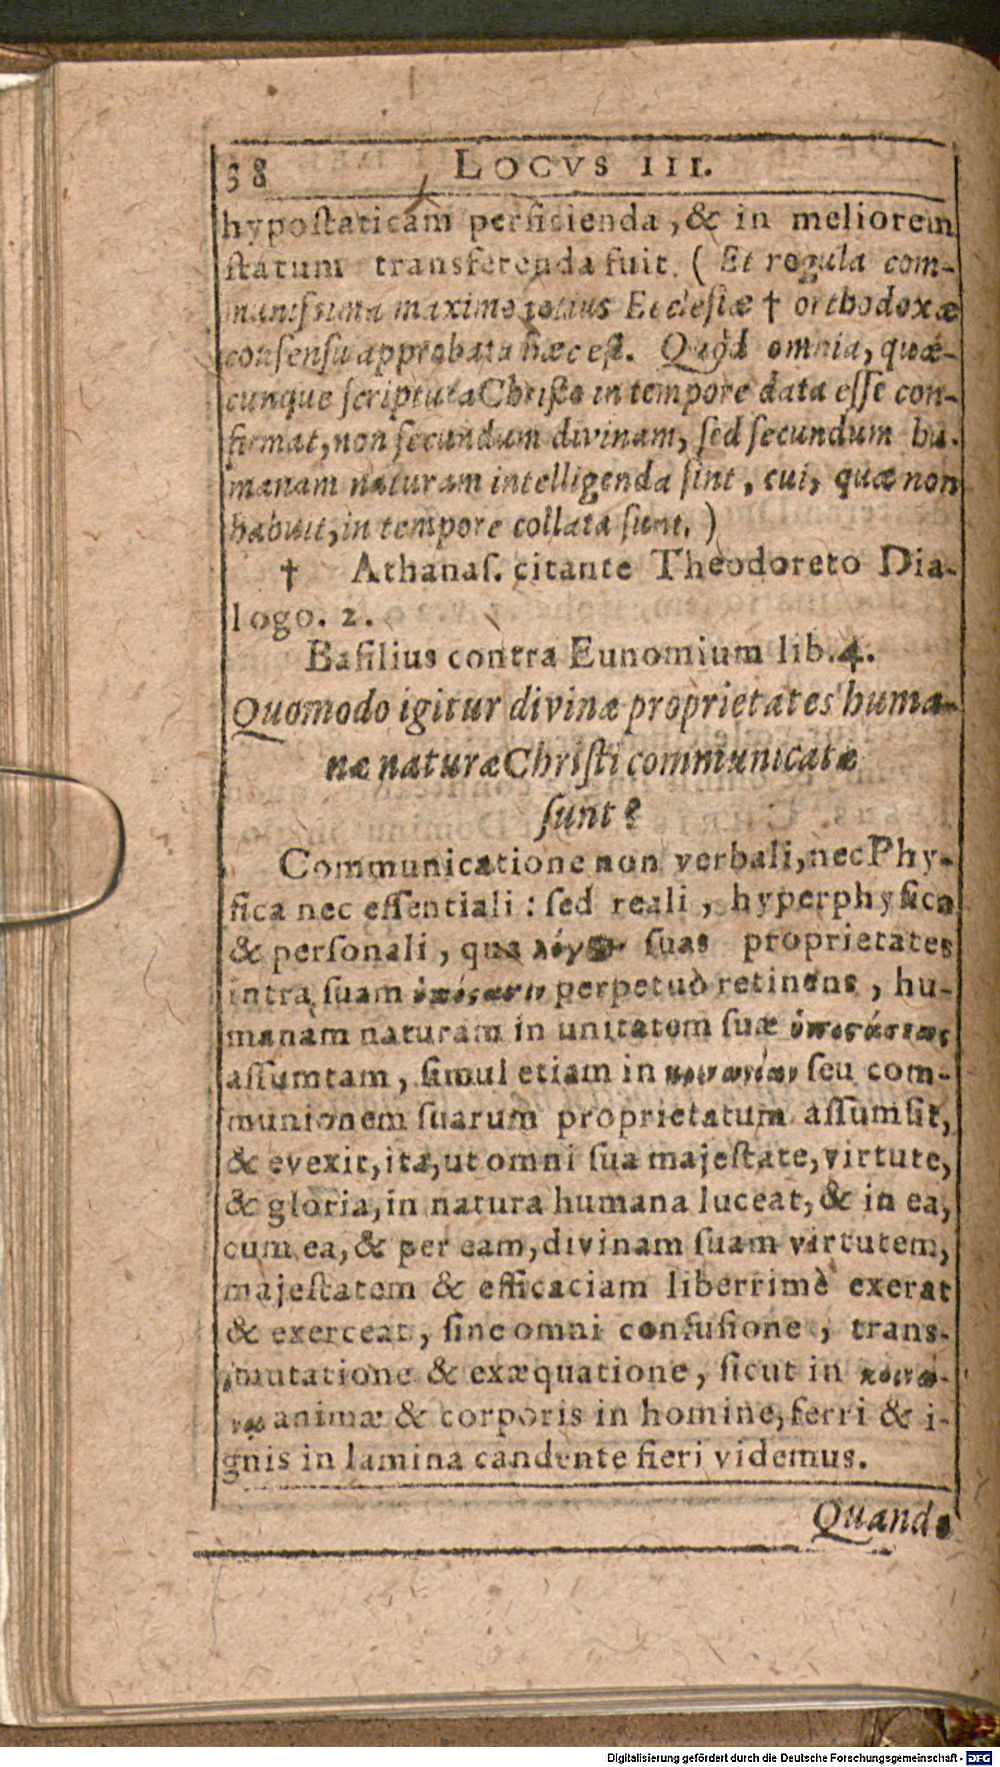 38 LOCVS III.
hypoſtaticam perficienda, & in meliorem
ſtatum transferenda fuit. ( Et regula com-
muniſſima maximo totius Eccleſiæ † orthodoxæ
conſenſu approbata hæc eſt. Quòd omnia, quæ-
cunque ſcriptura Chriſto in tempore data eſſe con-
firmat, non ſecundum divinam, ſed ſecundum hu-
manam naturam intelligenda ſint, cui, quæ non
habuit, in tempore collata ſunt. )
† Athanaſ. citante Theodoreto Dia-
logo. 2.
Baſilius contra Eunomium lib. 4.
Quomodo igitur divinæ proprietates huma-
næ naturæ Chriſti communicatæ
ſunt?
Communicatione non verbali, nec Phy-
ſica nec eſſentiali : ſed reali, hyperphyſica
& perſonali, qua λόγος ſuas proprietates
intra ſuam perpetuò retinens, hu-
manam naturam in unitatem ſuæ ὑποςάσεως
aſſumtam, ſimul etiam in κοινωνίαν ſeu com-
munionem ſuarum proprietatum aſſumſit,
& evexit, ita, ut omni ſua majeſtate, virtute,
& gloria, in natura humana luceat, & in ea,
cum ea, & per eam, divinam ſuam virtutem,
majeſtatem & efficaciam liberrimè exerat
& exerceat, ſine omni confuſione, trans-
mutatione & exæquatione, ſicut in κοινω-
νίᾳ animæ & corporis in homine, ferri & i-
gnis in lamina candente fieri videmus.
Quando
Digitalisierung gefördert durch die Deutsche Forschungsgemeinschaft - DFG